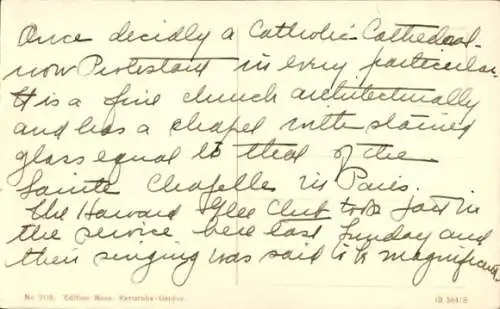 Once decidly a Catholic Cathedral -
now Protestant in every particular.
It is a fine church architectually
and has a chapel with stained
glass equal to that of the
Sainte Chapelle in Paris.
The Harvard Glee Club took part in
the service here last Sunday and
their singing was said to be magnificent
No.